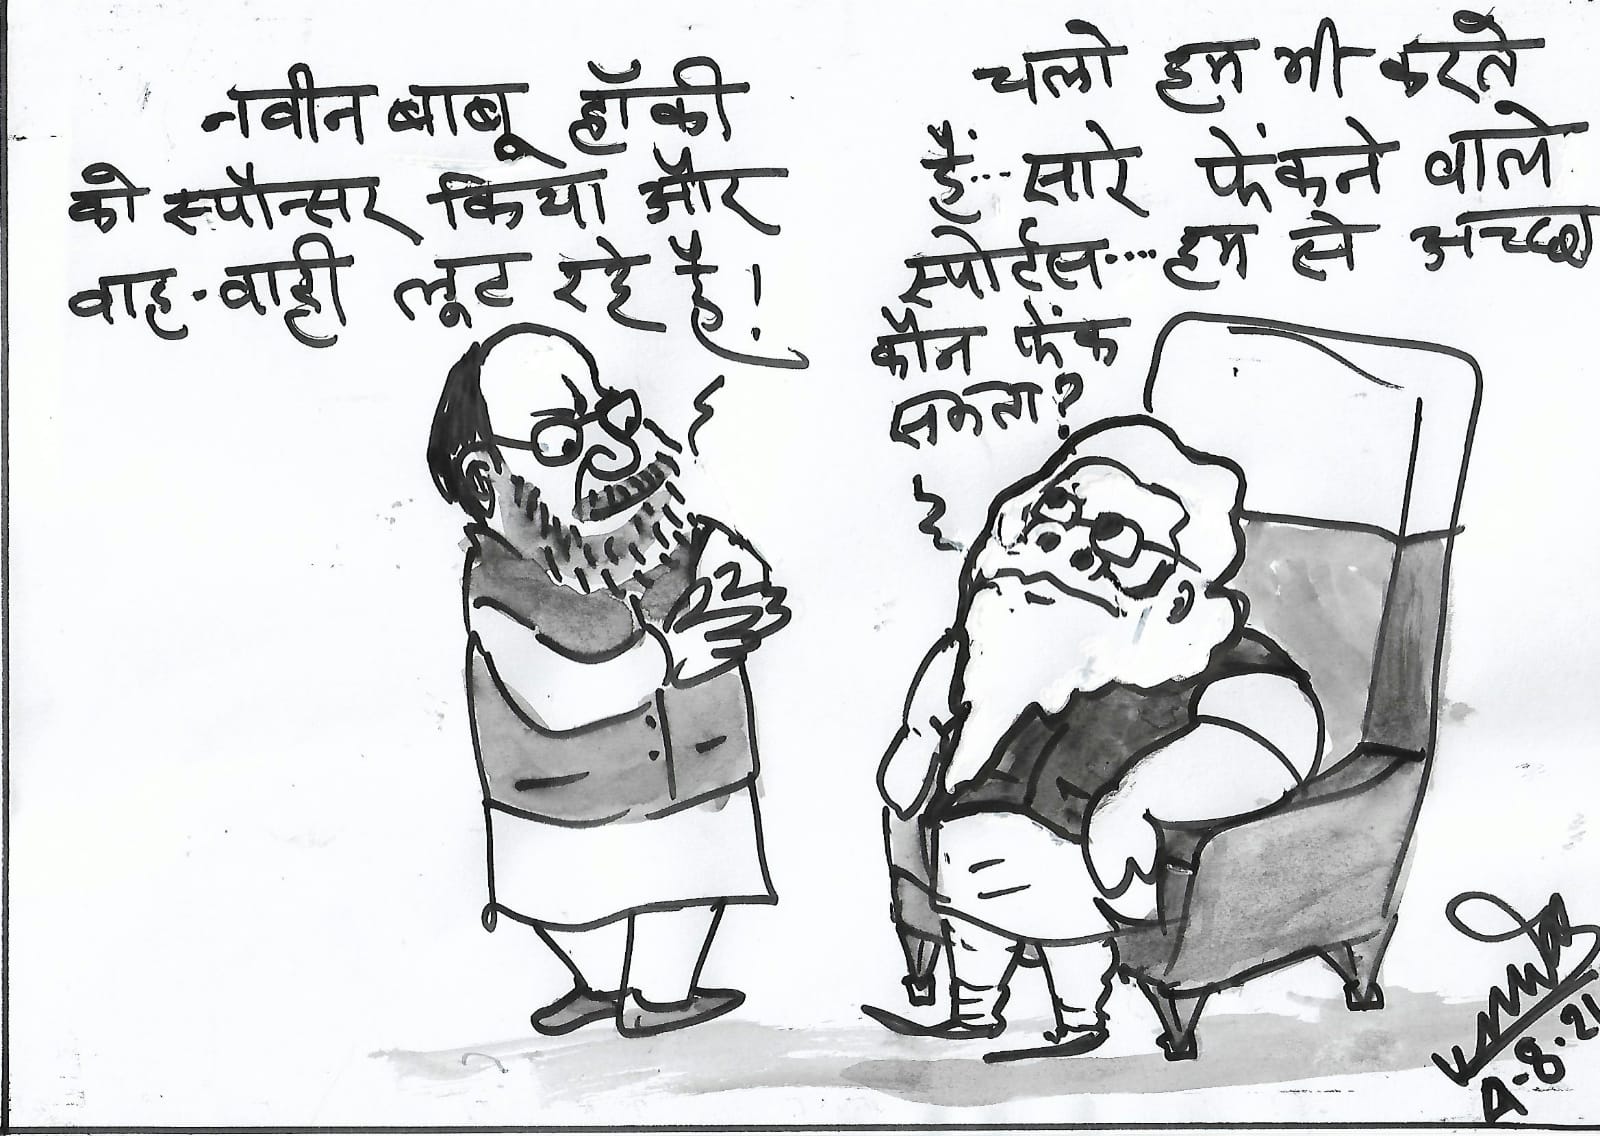 नवीन बाबू हॉकी
को स्पौन्सर किया और
वाह-वाही लूट रहे हैं!
चलो हम भी करते
हैं... सारे फेंकने वाले
स्पोर्ट्स.... हम से अच्छा
कौन फेंक
सकता?
8.21